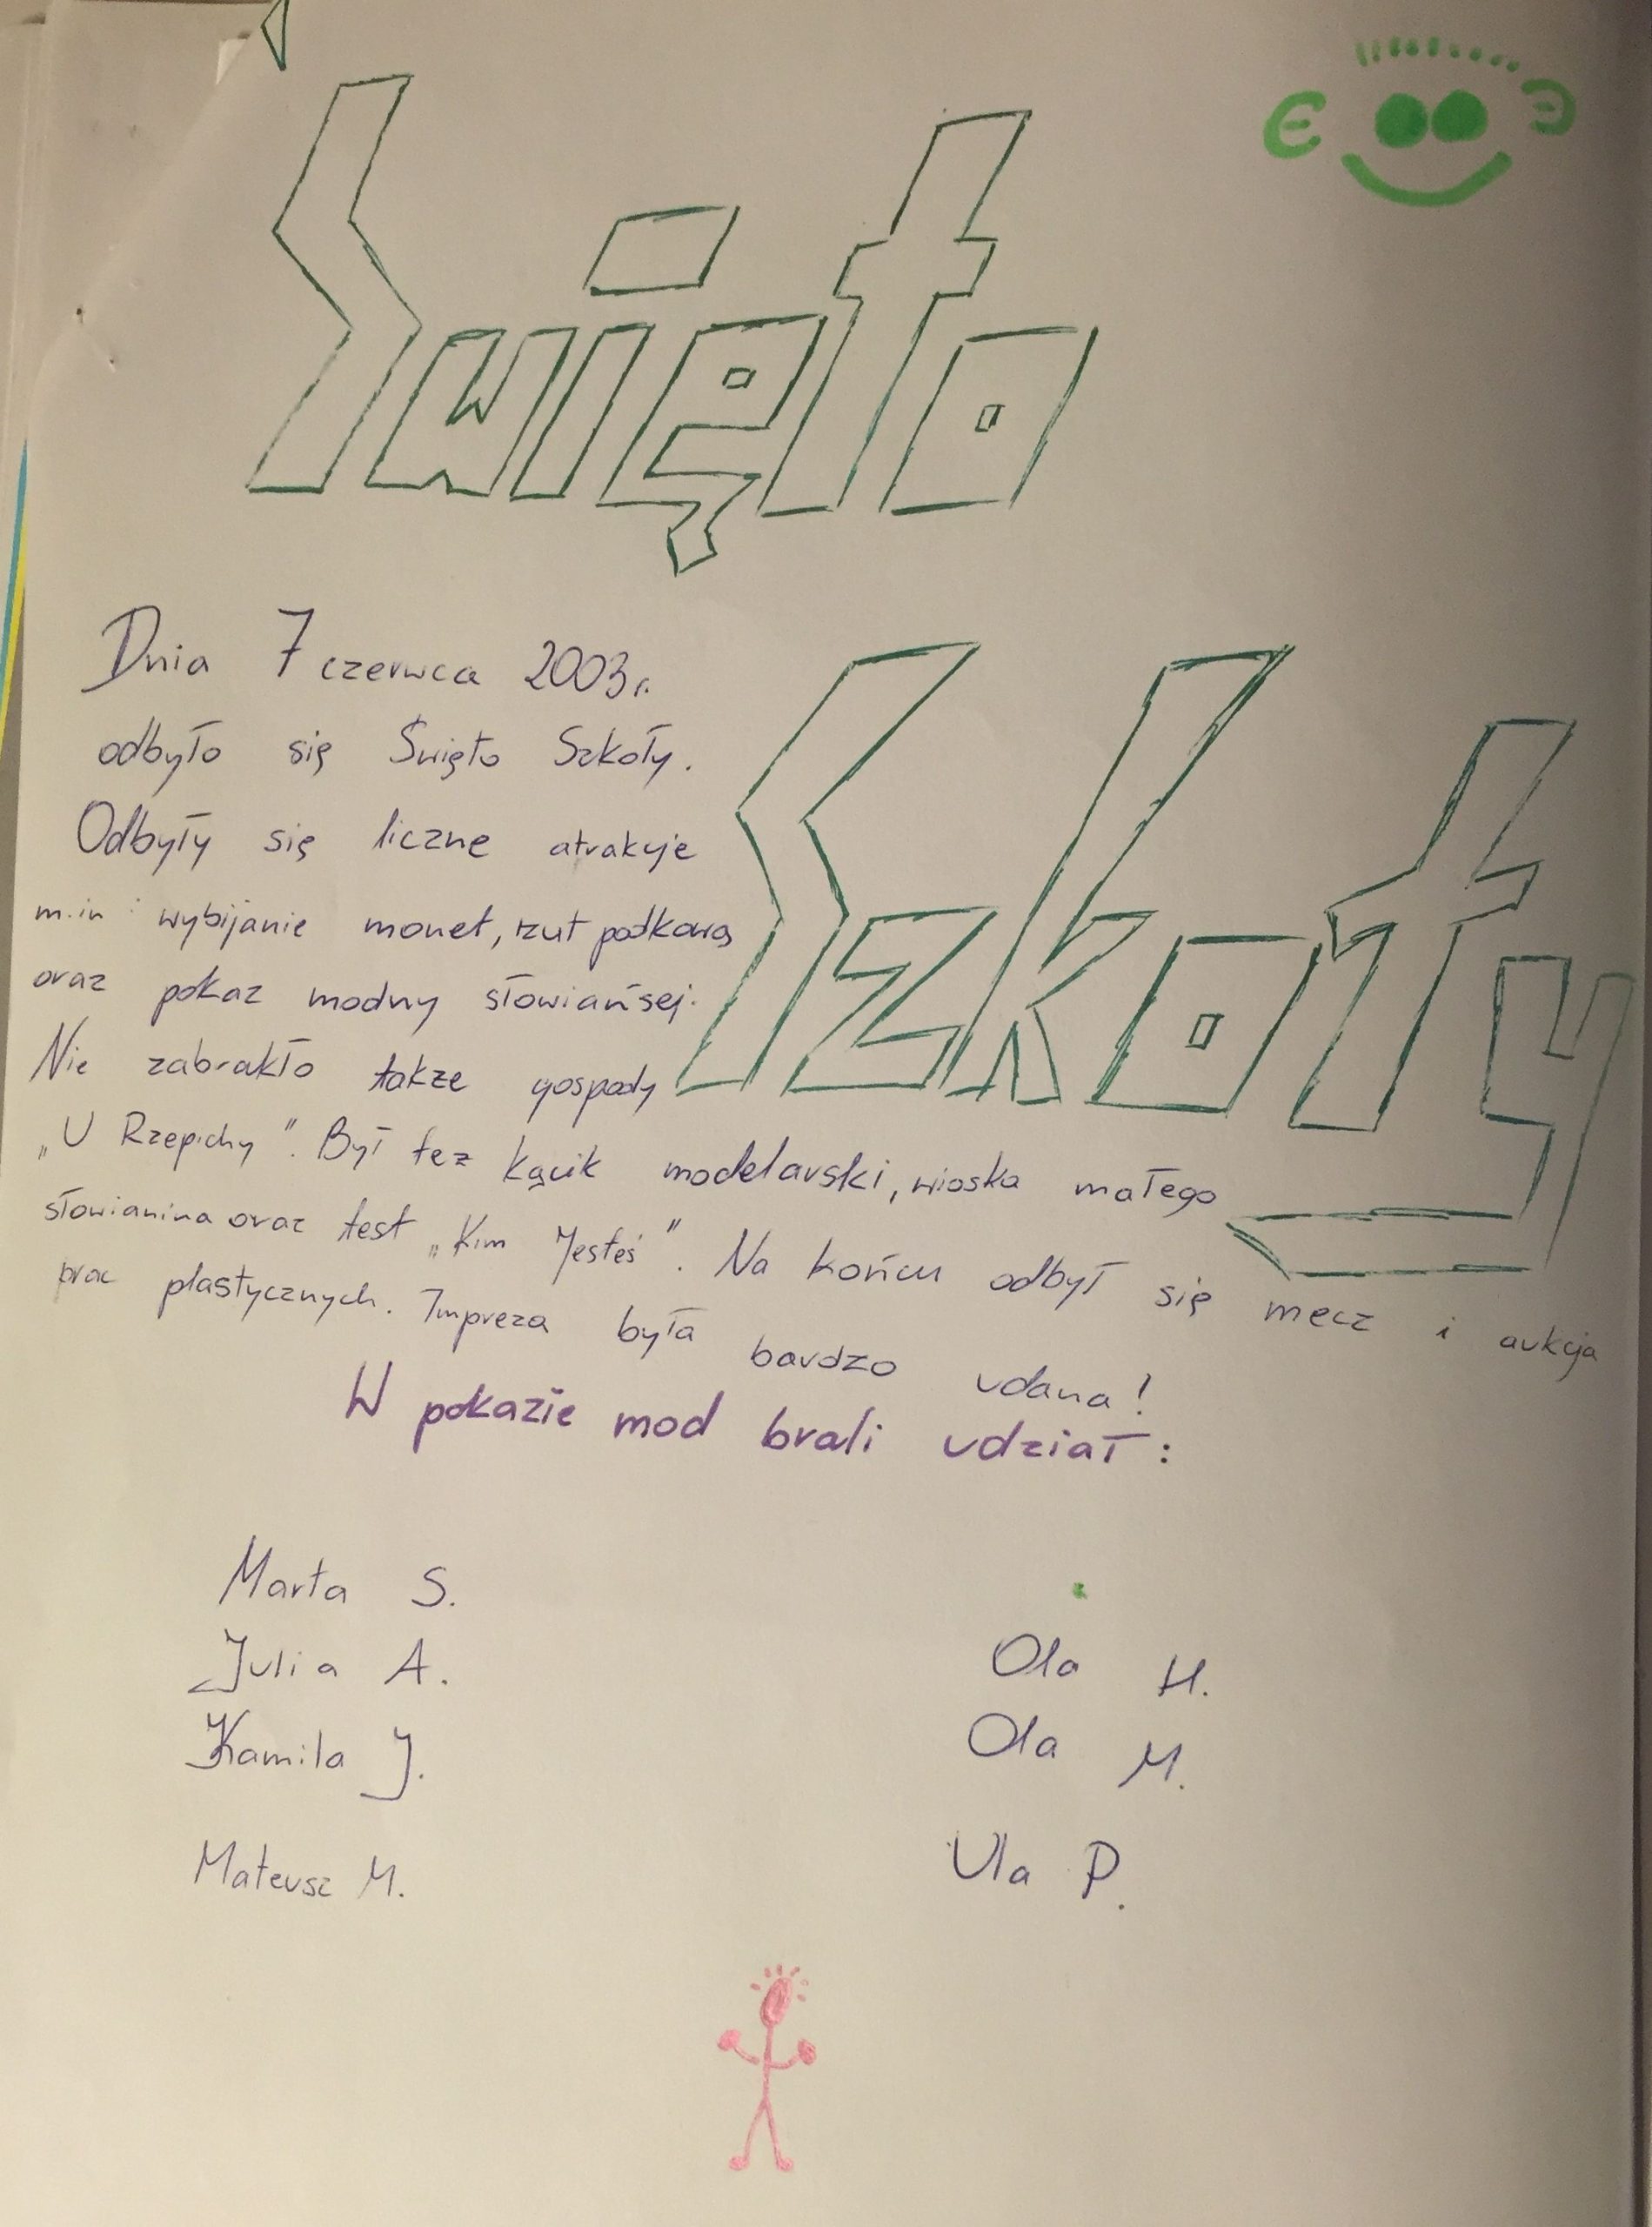 Święto
Szkoły
Dnia 7 czerwca 2003r.
odbyło się Święto Szkoły.
Odbyły się liczne atrakcje
m.in: wybijanie monet, rzut podkową
oraz pokaz modny słowiańsej.
Nie zabrakło takze gospody
„U Rzepichy". Był tez kącik modelarski, wioska małego
słowianina oraz test „Kim Jesteś". Na końcu odbył się mecz i aukcja
prac plastycznych. Impreza była bardzo udana!
W pokazie mod brali udział:
Marta S.
Julia A.
Kamila J.
Mateusz M.
Ola H.
Ola M.
Ula P.